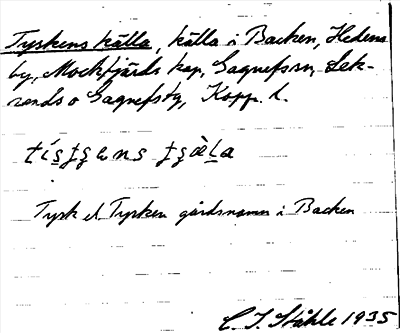 Tyskens källa, källa i Backen, Hedens
by, Mockfjärds kap., Gagnefs sn, Lek-
sands o Gagnefs tg, Kopp. l.
Tysk el. Tysken gårdsnamn i Backen
C. I. Ståhle 1935